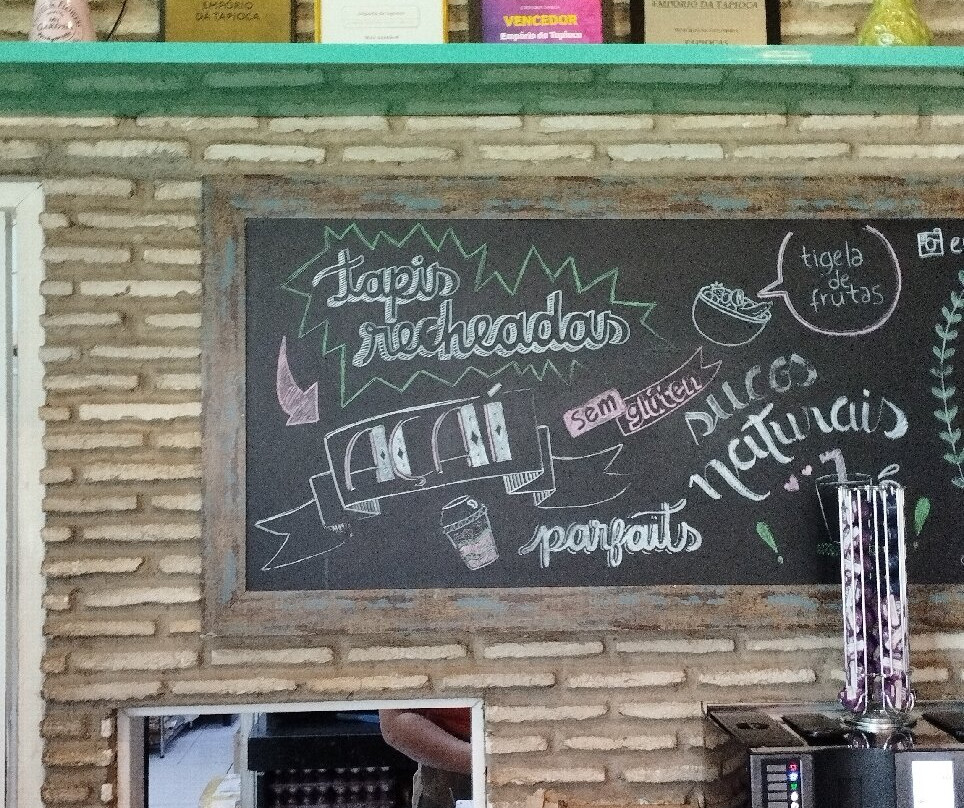 EMPÓRIO
DA TAPIOCA
VENCEDOR
Empório da Tapioca
EMPÓRIO DA TAPIOCA
tapis
recheadas
tigela
de
frutas
sem
glúten
AÇAÍ
sucos
naturais
parfaits